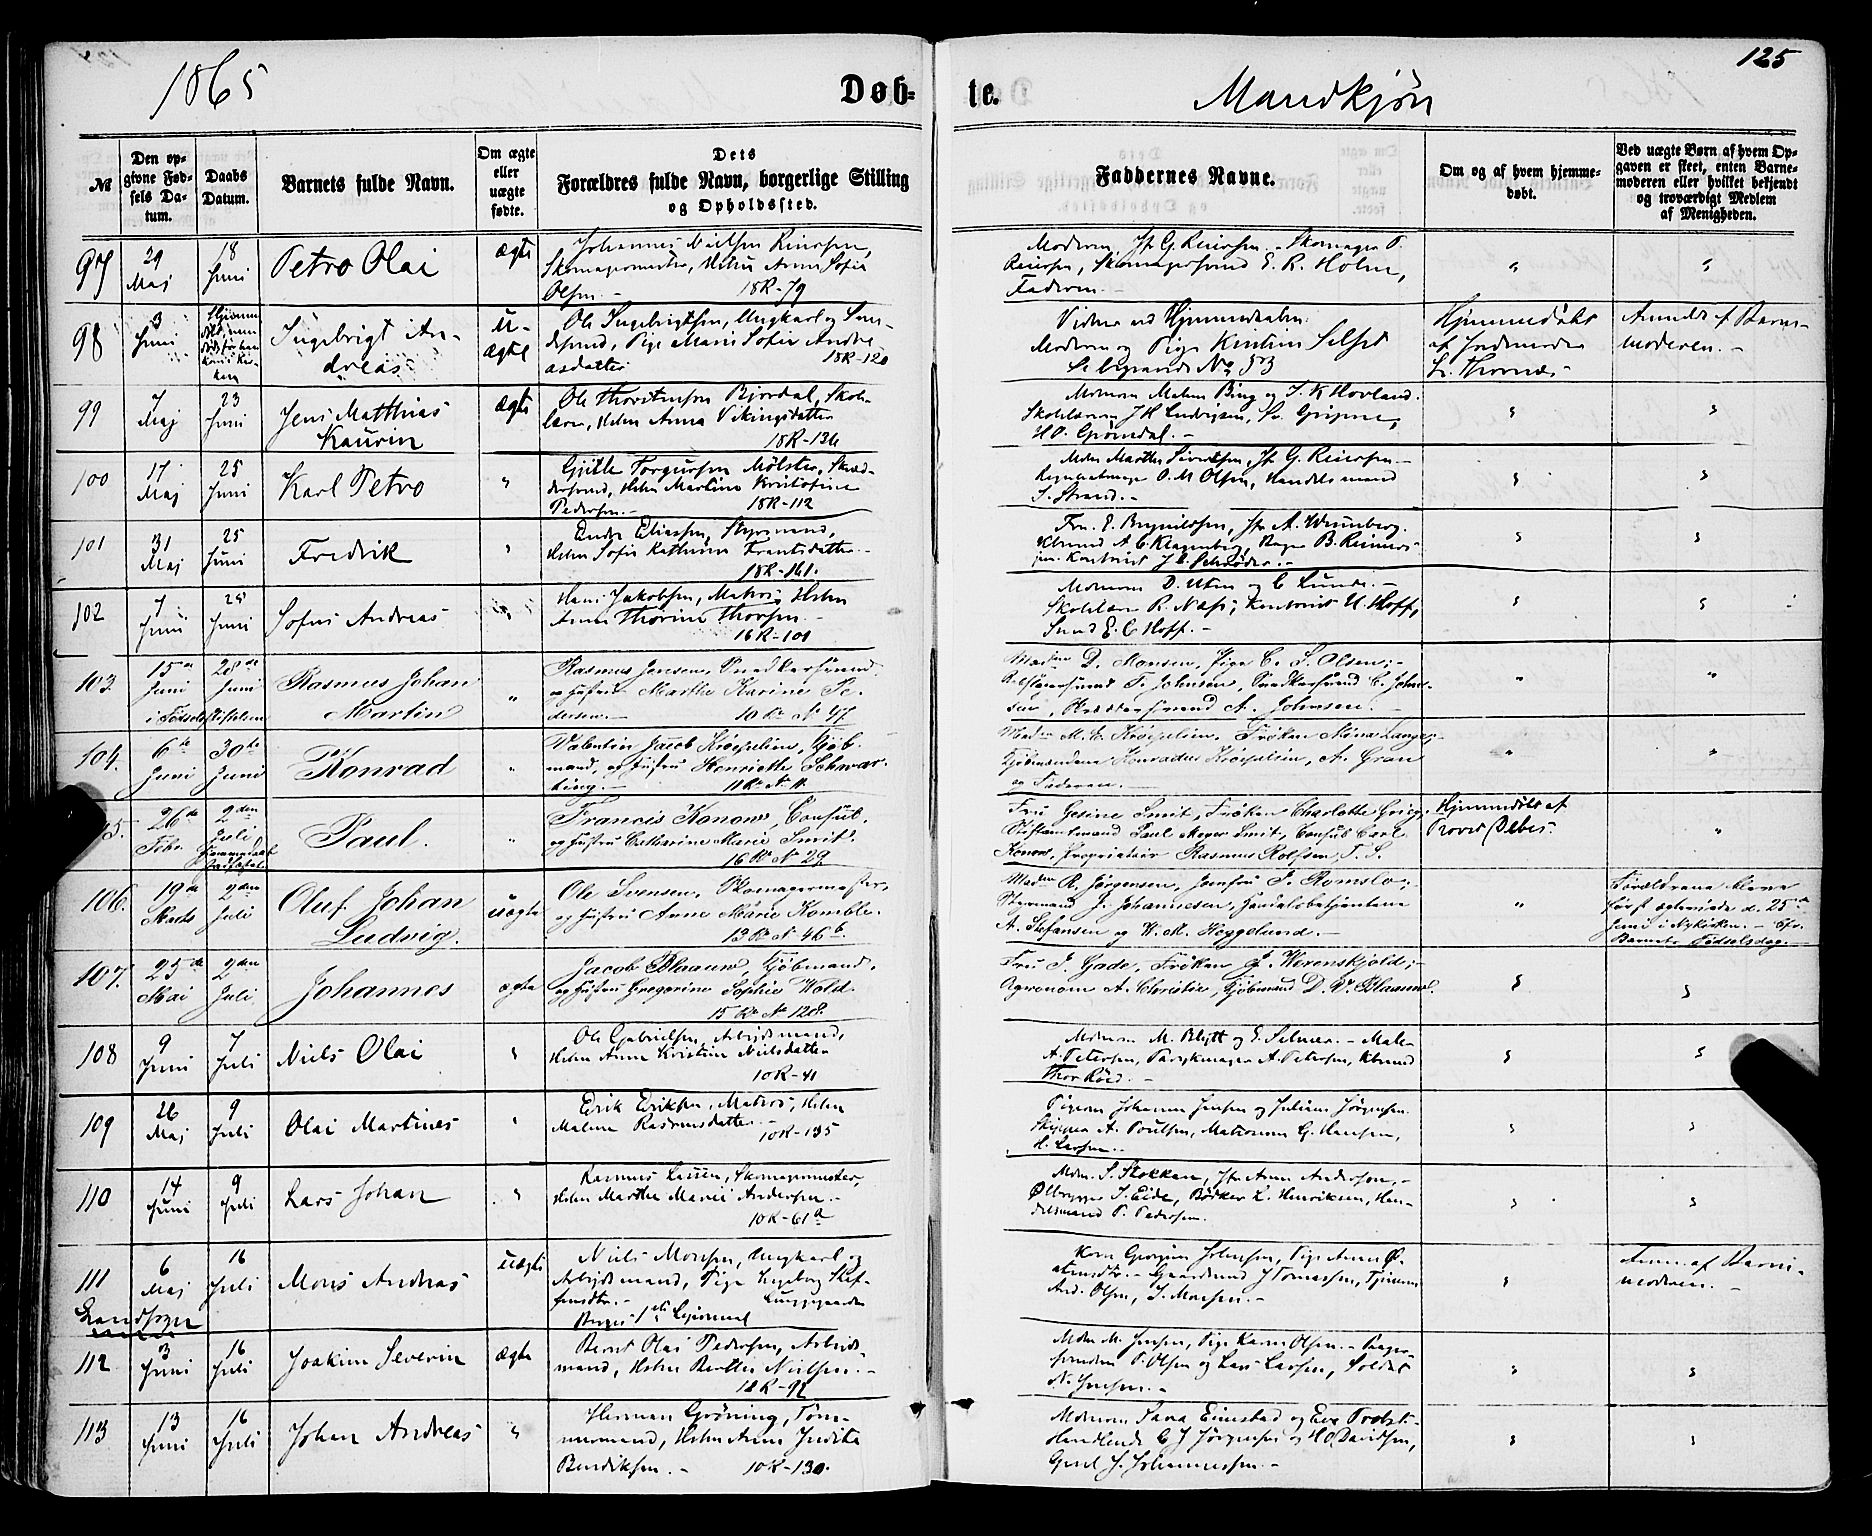 125
1865
Døb-
te.
Mandkjøn
№
Den op-
givne Fød-
sels Da-
tum.
Daabs
Datum.
Barnets fulde Navn.
Om ægte
eller
uægte
fødte.
Dets
Forældres fulde Navn, borgerlige Stilling
og Opholdssted.
Faddernes Navne.
Om og af hvem hjemme-
døbt.
Ved uægte Børn af hvem Op-
gaven er skeet, enten Barne-
moderen eller hvilket bekjendt
og troværdigt Medlem
af Menigheden.
97
29
Maj
18
Juni
Petro Olai
ægte
Johannes Nielsen Reiersen,
Skomagermester, Hstru Anne Sofie
Olsen.-
18R-79
Madamen, Jfr G. Reiersen.- Skomager P.
Reiersen, Skomagersvend E. R. Holm,
Faderen.-
"
"
98
3
Juni
Ingebrigt An-
dreas
u-
ægte
Ole Ingebrigtsen, Ungkarl og
Pige Maris Sofie Andre-
asdatter
18R-120
Vidner ved Hjemmedaaben:
Moderen og Pige
No 53
Hjemmedøbt
af Jordemoder
Thornæs
Anmeldt af Barne-
moderen.-
99
7
Maj
23
Juni
Jens Matthias
Kaurin
ægte
Ole Thorstensen Bjordal, Skole-
lærer, Hstru Anna Vikingsdatter
18R-136
Madamen Malene Bing og J. K Hovland.
Skolelærerne J H Ludvigsen,
H O. Grøndal.-
"
"
100
17
Maj
25
Juni
Karl Petro
"
Gjille Torgersen Mølster, Skræd-
dersvend, Hstru Martine Kristofine
Pedersen.-
18R-112
Mdm Marthe Sivertsen, Jfr G. Reiersen.-
O. M Olsen, Handelsmand
S. Strand.-
"
"
101
31
Maj
25
Juni
Fredrik
"
Endre Eliassen, Styrmand,
Hstru Sofie Kathrine Frantsdatter.-
18R-161.
Fru E. Brynildsen, Jfr A. Wesenberg.
A. C. Klagenberg, Bager B. Reimers
jun. Kontorist J. C. Schrøder.-
"
"
102
7
Juni
25
Juni
Sofus Andreas
"
Hans Jakobsen, Matros, Hstru
Anne Thorine Thorsen.-
16R-101
Madamen D. Uten og C Lunde.-
Skolelærer R. Næss, Kontorist U. Hoff,
Svend E. C Hoff.-
"
"
103.
15de
Juni
28de
Juni
i Fødselsstiftelsen
Rasmus Johan
Martin
"
Rasmus Jensen, Snedkersvend
og Hustru Marthe Karine Pe-
dersen.-
10 Re № 47
Madm D. Monsen, Pige C. S. Olsen;-
F. Johnsen, Snedkersvend C. John-
sen, A. Johnsen.-
"
"
104.
6te
Juni
30te
Juni
Konrad
"
Valentin Jacob Krøepelien, Kjøb-
mand, og Hustru Henriette Schwar-
tking.-
11 Re № 11.
Madm M. E. Krøepelien, Frøken Mina Lange;-
Kjøbmændene Konradus Krøepelien, A. Gran
og Faderen.-
"
"
5.
26de
Febr.
2den
Juli
Paul.
"
Francis Konow, Consul,
og Hustru Catharine Marie Smit.
16 Re № 29
Fru Gesine Smit, Frøken Charlotte Grieg,
Stiftamtmand Paul Meyer Smit, Consul Carl
Konow, Proprietair Rasmus Rolfsen, F. S.
Hjemmedøbt af
Provst Debes.
"
106.
19de
Marts
2den
Juli
Oluf Johan
Ludvig.
uægte
Ole Svensen, Skomagermester,
og Hustru Anne Marie Komble.
13 Re № 46b.
Madm R. Jørgensen, Jomfru J. Romslo;-
Styrmand J. Johannesen, Handelsbetjentene
A. Stefansen og W. M. Heggelund.-
"
Forældrene bleve
først ægteviede d. 25de
Juni i Nykirken.- Efr.
Barnets Fødselsdag.-
107.
25de
Mai
2den
Juli
Johannes
ægte
Jacob Blaauw, Kjøbmand,
og Hustru Gregorine Sophie Wold.
15 Re № 128.
Fru J. Gade, Frøken J. Werenskjold;-
Agronom A. Christie, Kjøbmand D. V. Blaauw.
"
"
108
9
Juni
7
Juli
Niels Olai
"
Ole Gabrielsen, Arbejdsmand,
Hstru Anne Kristine Nielsdatter
10R-41
Madamen M. Blytt og E. Selmer.- Maler
A. Petersen, Parykmager A. Petersen,
Thor Røed.-
"
"
109
26
Maj
9
Juli
Olai Martines
"
Erik Eriksen, Matros, Hstru
Malene Rasmusdatter.-
10R-135
Pigerne Johanne Jensen og Juliane Jørgensen.
Skipper A. Poulsen, Matroserne G. Hansen,
H. Larsen.-
"
"
110
14
Juni
9
Juli
Lars Johan
"
Rasmus Larsen, Skomagermester,
Hstru Marthe Marie Andersen.-
10R-61a
Mdm. S. Stokken, Jfr Anne Andersen,.-
Ølbrygger S. Eide, Bødker L. Henriksen, Han-
delsmand P. Pedersen.
"
"
111
Landsogn
6
Maj
16
Juli
Mons Andreas
uægte
Niels Monsen, Ungkarl og
Arbejdsmand, Pige Ingeborg Stef-
fensdtr.-
Lungegaarden
Kone Gjørine Johnsen, Pige Anne O.
Gaardmand J Tomassen, Tjenere
And. Olsen, J. Monsen.-
"
Anm. af Barne-
moderen.-
112
3
Juni
16
Juli
Joakim Severin
ægte
Bernt Olai Pedersen, Arbeids-
mand, Hstru Berthe Nielsen.-
18R-92
Mdm M. Jensen, Pige Karen Olsen.- Bager-
svendene P. Olsen og Lars Larsen, Soldat
N. Jensen.-
"
"
113
13
Juni
16
Juli
Johan Andreas
"
Herman Grøning, Tøm-
mermand, Hstru Anne Judita
Bendiksen.-
10R-130.
Madamen Sara Eimstad og Eva Probst.-
Handlende C J Jørgensen og H O Davidsen,
Gesel J. Johannessen.-
"
"